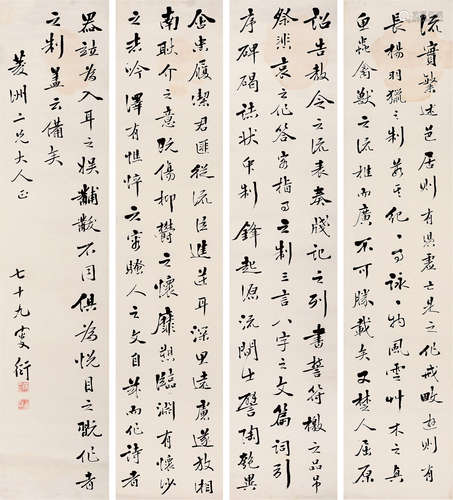 流實繁述邑居則有憑虛亡是之作戒畋遊則有
長楊羽獵之制若其紀一事詠一物風雲艸木之興
魚蟲禽獸之流推而廣不可勝載矣又楚人屈原
詔告教令之流表奏牋記之列書誓符檄之品弔
祭悲哀之作答客指事之制三言八字之文篇詞引
序碑碣誌狀眾制鋒起源流間出譬陶匏異
含忠履潔君匪從流臣進逆耳深思遠慮遂放湘
南耿介之意既傷抑鬱之懷靡愬臨淵有懷沙
之志吟澤有憔悴之容騷人之文自茲而作詩者
器竝為入耳之娛黼黻不同俱為悅目之翫作者
之制蓋云備矣
菱洲二兄大人正
七十九叟衍